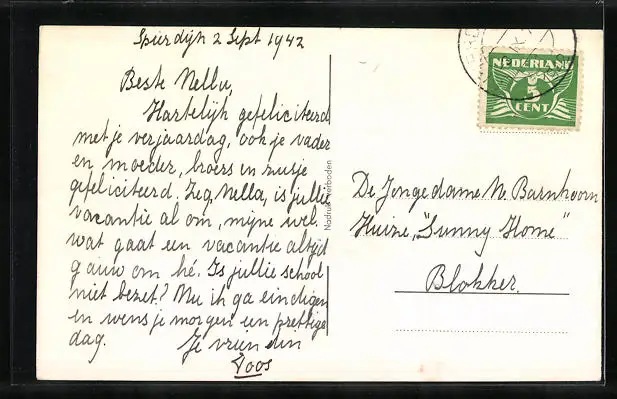 Spierdijk 2 Sept 1942
Beste Nella,
Hartelijk gefeliciteerd
met je verjaardag, ook je vader
en moeder, broers en zusje
gefeliciteerd. Zeg, Nella, is jullie
vacantie al om, mijne wel.
wat gaat een vacantie altijd
gauw om hé. Is jullie school
niet bezet? Nu ik ga eindigen
en wens je morgen een prettige
dag. Je vriendin
Toos
Nadruk verboden
NEDERLAND
5
CENT
De Jongedame N. Barnhoorn
Huize, "Sunny Home"
Blokker.